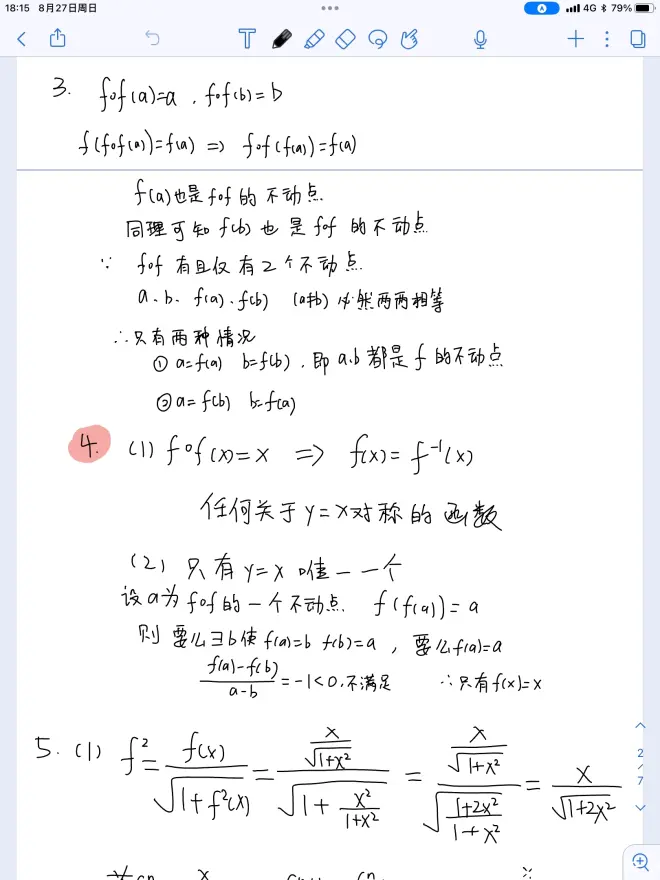 18:15 8月27日周日
4G 79%
3. f∘f(a)=a , f∘f(b)=b
f(f∘f(a))=f(a) => f∘f(f(a))=f(a)
f(a)也是f∘f的不动点
同理可知f(b)也是f∘f的不动点
∵ f∘f有且仅有2个不动点
a、b、f(a)、f(b) (a≠b) 必然两两相等
∴只有两种情况
① a=f(a) b=f(b),即a.b都是f的不动点
② a=f(b) b=f(a)
4. (1) f∘f(x)=x => f(x)=f⁻¹(x)
任何关于y=x对称的函数
(2) 只有y=x唯一一个
设a为f∘f的一个不动点. f(f(a))=a
则要么∃b使f(a)=b f(b)=a,要么f(a)=a
(f(a)-f(b))/(a-b) =-1<0,不满足 ∴只有f(x)=x
5. (1) f²= f(x)/√(1+f²(x)) = (x/√(1+x²))/√(1+x²/(1+x²)) = (x/√(1+x²))/√((1+2x²)/(1+x²)) = x/√(1+2x²)
2
7